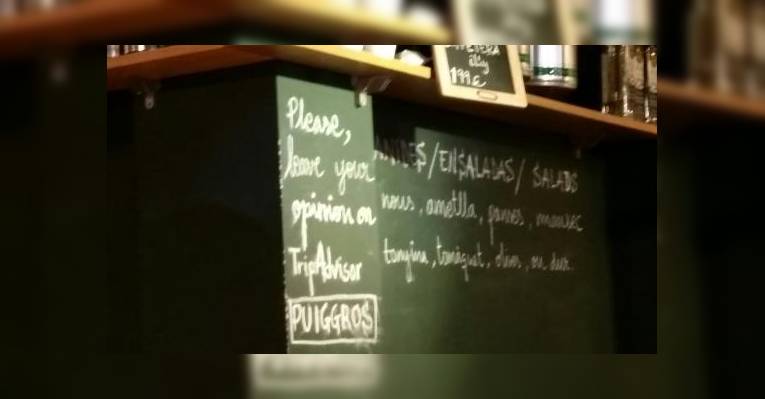 Please,
leave your
opinion on
TripAdvisor
PUIGGROS
/ENSALADAS/ SALADS
nous, ametlla, panses,
tonyina, tomàquet, olives, ou dur.
199€